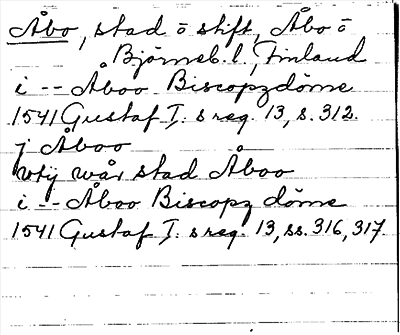 Åbo, stad o stift, Åbo o
Björneb. l., Finland
i -- Åboo Biscopzdöme
1541 Gustaf I:s reg. 13, s. 312.
j Åboo
vtij wår stad Åboo
i -- Åboo Biscopz döme
1541 Gustaf I:s reg. 13, ss. 316, 317.